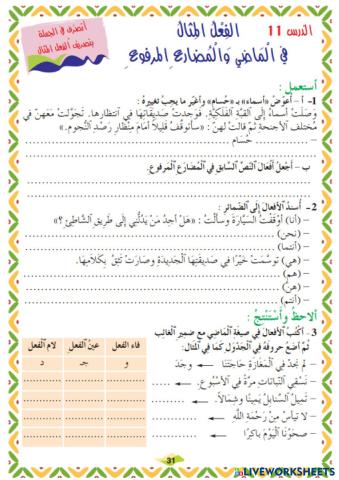 أتصرف في الجملة
بتصريف الفعل المثال
الدرس 11
الفِعْلُ المِثَالُ
فِي الْمَاضِي وَالْمُضَارِعِ المَرْفُوعِ
أستعمل :
1- أ - أُعَوِّضُ «أسماء» بـ «حُسام» وأُغَيِّرُ ما يجبُ تغييرُهُ :
وَصَلَتْ أَسماءُ إلى القُبَّةِ الفَلَكِيَّةِ. فَوَجَدَتْ صَدِيقَاتِهَا فِي انتظارِها. تَجَوَّلَتْ مَعَهُنَّ في
مُخْتَلَفِ الأجنحةِ ثُمَّ قالتْ لهنَّ : «سأتوقَّفُ قليلًا أمامَ مِنْظَارِ رَصْدِ النُّجُومِ.»
حُسَام
ب - أجْعَلُ أفعالَ النَّصِّ السَّابِقِ في المُضَارَعِ المَرْفُوعِ.
2 - أُسْنِدُ الأفعالَ إلى الضَّمائِرِ :
- (أنا) أوْقَفْتُ السَّيَّارَةَ وسألْتُ : «هَلْ أجِدُ مَنْ يَدُلُّنِي إلى طَرِيقِ الشَّاطِئِ ؟»
- (نحن)
- (أنتما)
- (هي) توسَّمَتْ خَيْرًا فِي صَدِيقَتِهَا الجَدِيدَةِ وصَارَتْ تَثِقُ بِكَلَامِهَا.
- (هم)
- (هنّ)
- (أنتم)
ألاحظ وأَسْتَنْتِجُ :
3 - أكْتُبُ الأفعالَ فِي صِيغَةِ المَاضِي مَعَ ضَمِيرِ الغائبِ
ثُمَّ أضَعُ حروفَهُ فِي الجَدْوَلِ كَمَا فِي المِثالِ:
فاء الفعل
عينُ الفعلِ
لام الفعل
- لَمْ نَجِدْ فِي الْمَغَازَةِ حَاجَتَنَا ← وجَدَ
و
جـ
د
- نَسْقِي النَّباتاتِ مرَّةً فِي الأُسْبُوعِ. ←
- تَمِيلُ السَّنابِلُ يَمِينًا وشِمالًا. ←
- لا تيأسْ مِنْ رَحْمَةِ اللَّهِ ←
- صَحَوْنَا الْيَوْمَ باكِرًا ←
31
LIVEWORKSHEETS